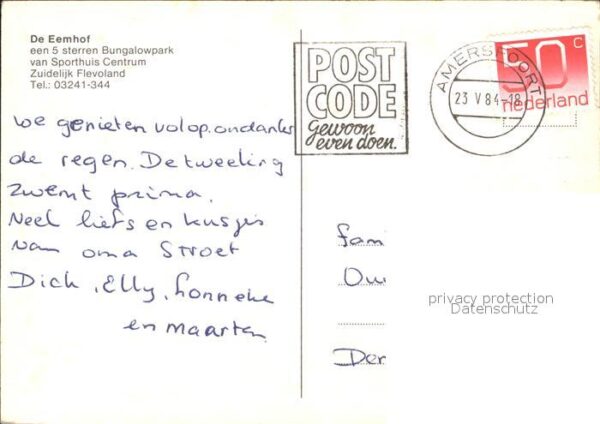 De Eemhof
een 5 sterren Bungalowpark
van Sporthuis Centrum
Zuidelijk Flevoland
Tel.: 03241-344
POST
CODE
Gewoon
even doen.
AMERSFOORT
23 V 84-18
50 C
nederland
we genieten volop. ondanks
de regen. De tweeling
zwemt prima.
Veel liefs en kusjes
van oma Stroet
Dick, Elly, Lonneke
en Maarten.
fam
Ouw
Der
privacy protection
Datenschutz